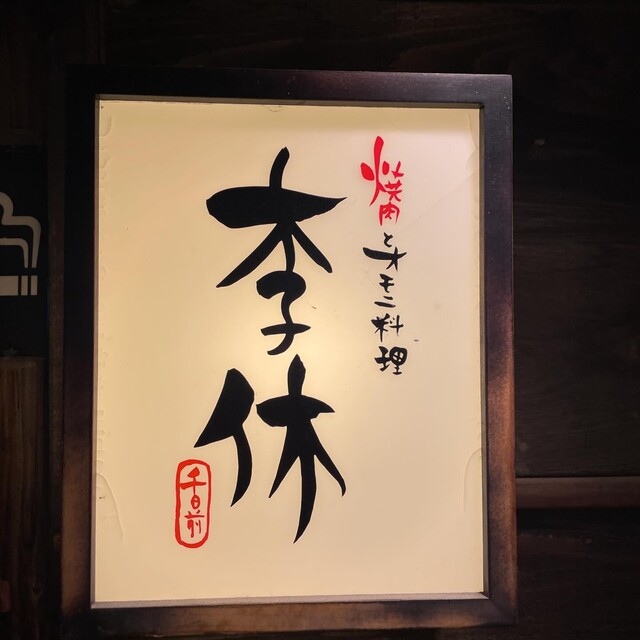 焼肉とオモニ料理
李休
千日前